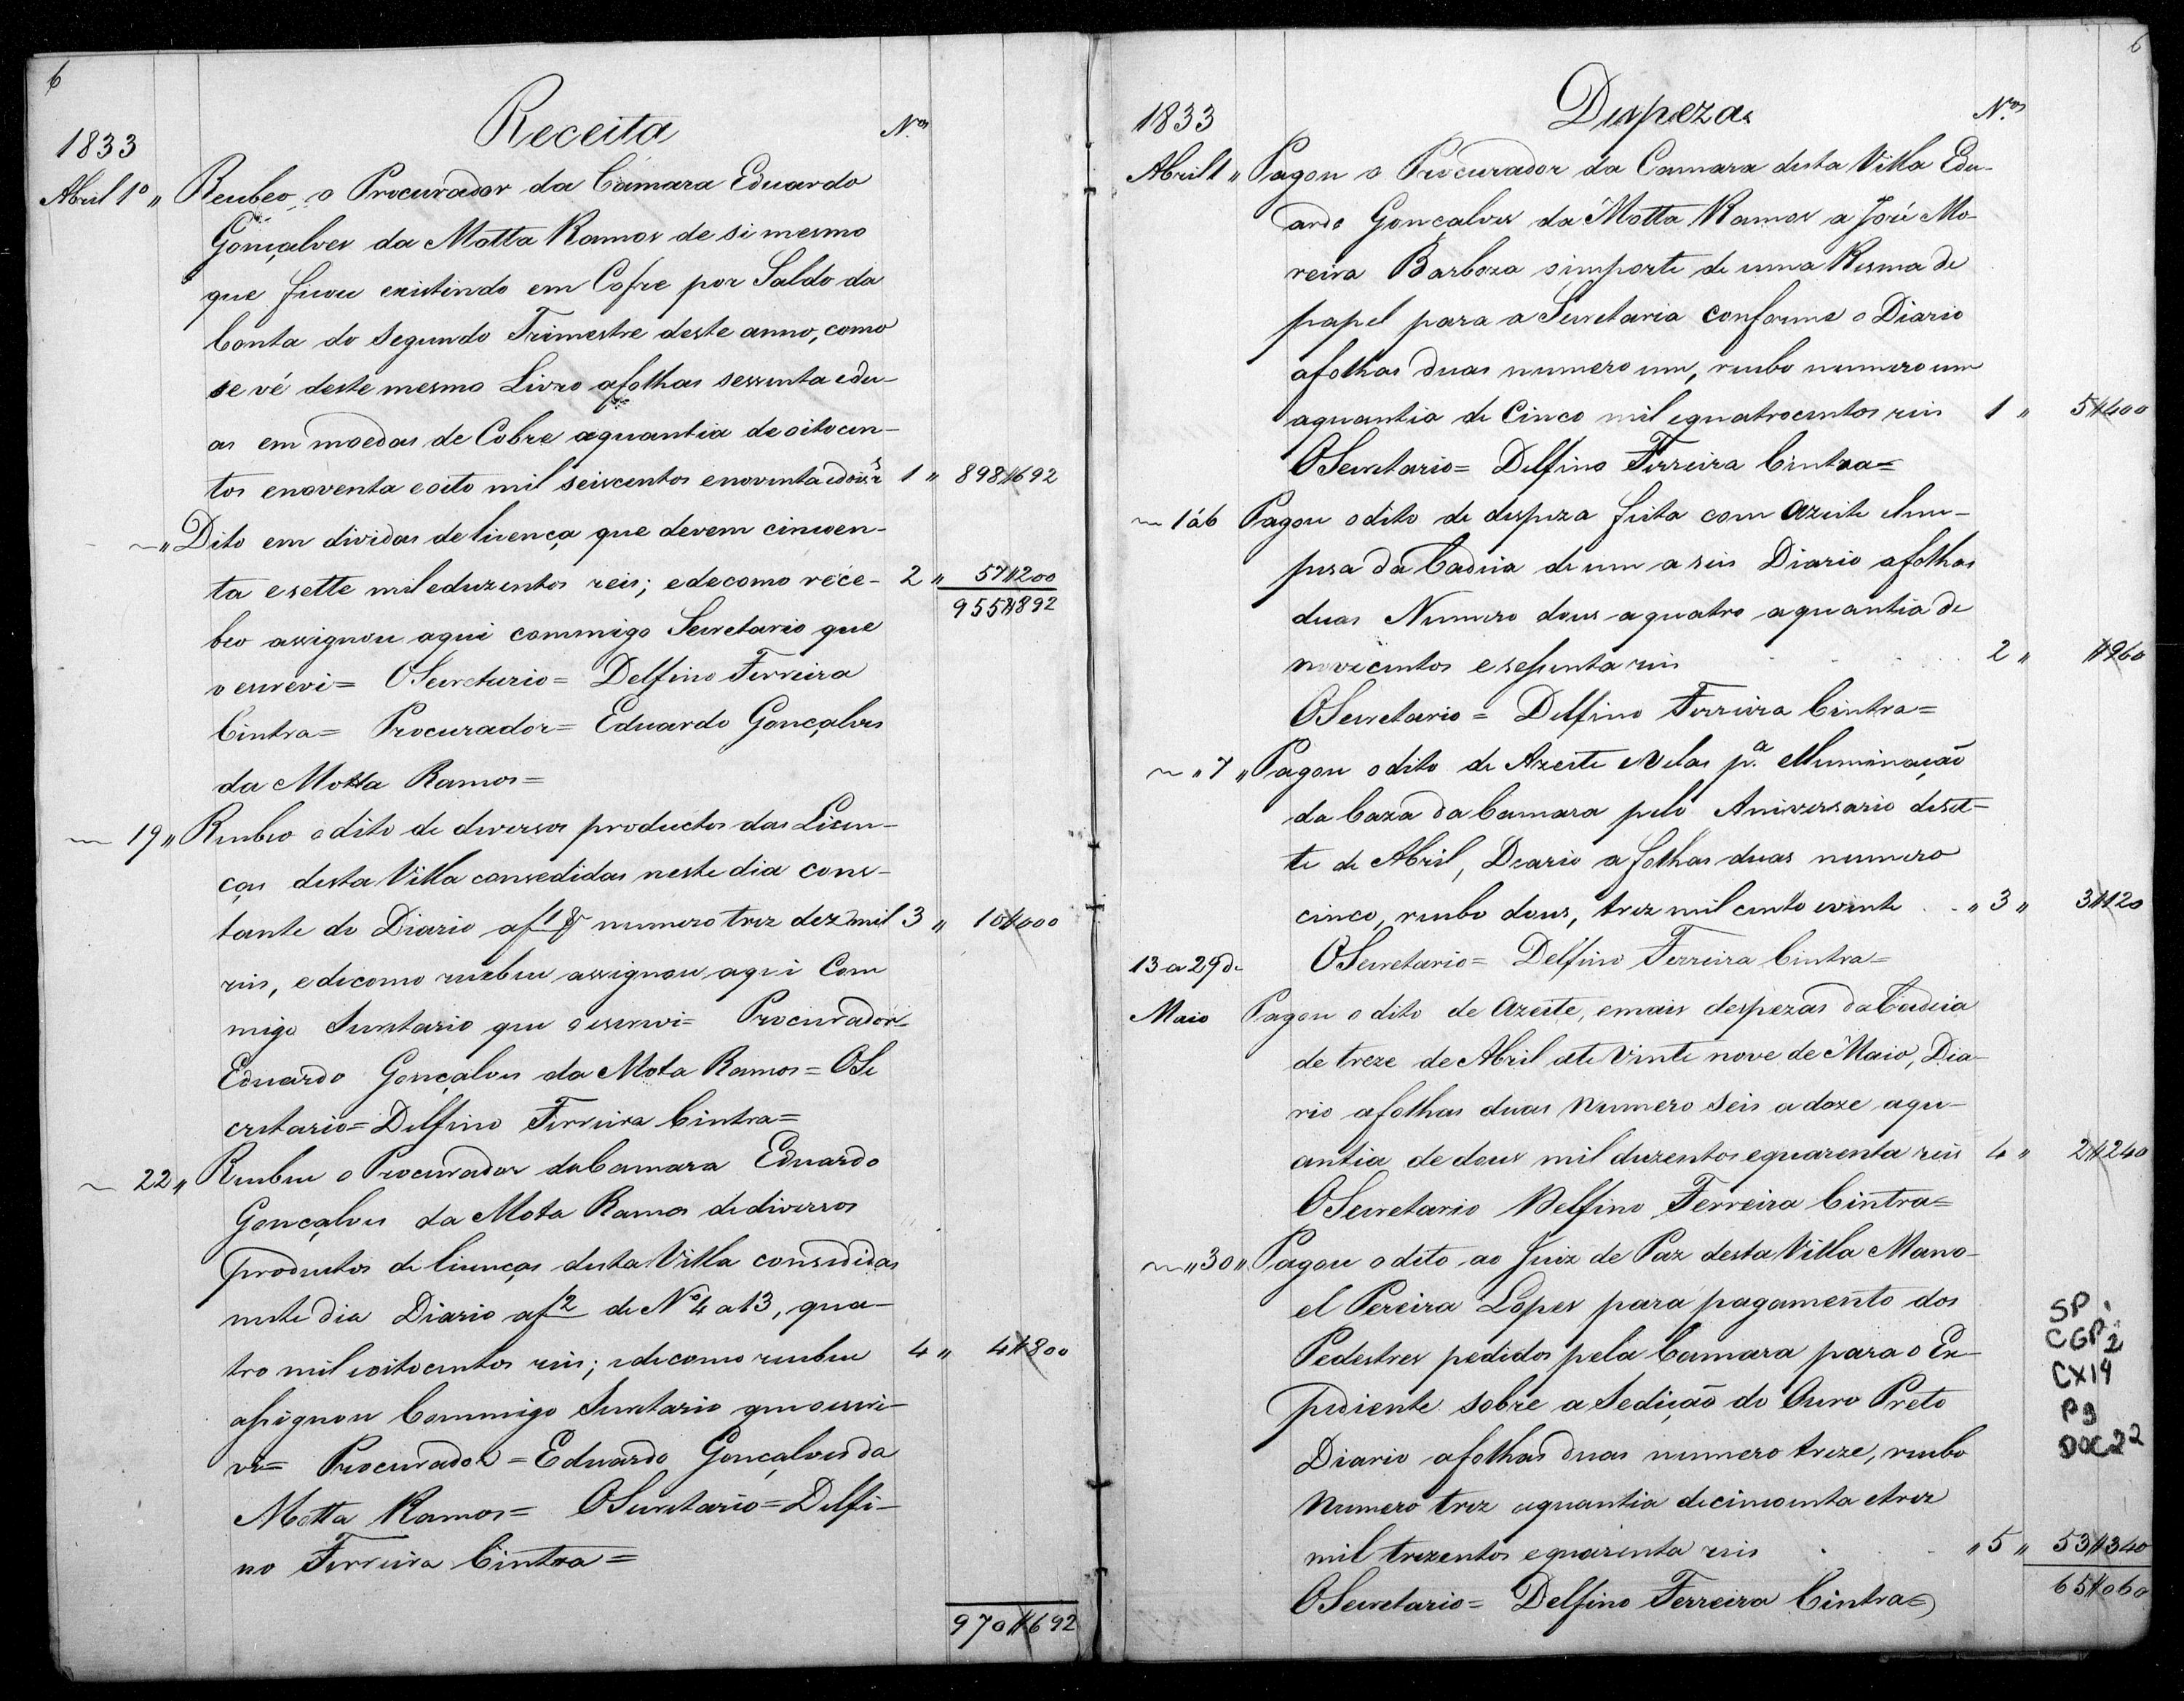 6
Receita
Nos
1833
Abril 1º " Recebeo o Procurador da Câmara Eduardo
Gonçalves da Motta Ramos de si mesmo
que ficou existindo em Cofre por Saldo da
Conta do Segundo Trimestre deste anno, como
se vê deste mesmo Livro afolhas sessenta edu-
as em moedas de Cobre aquantia de oitocen-
tos enoventa eoito mil seiscentos enoventa edois rs 1 " 898#692
~ " Dito em dividas de licença que devem cincoen-
ta esette mil eduzentos reis; edecomo rece- 2 " 57#200
955#892
beo assignou aqui commigo Secretario que
o escrevi= OSecretario= Delfino Ferreira
Cintra= Procurador= Eduardo Gonçalves
da Motta Ramos=
~ 19 " Recebeo odito de diversos productos das Licen-
ças desta Villa consedidas neste dia cons-
tante do Diario af 1 numero trez dez mil 3 " 10#000
reis, edecomo recebeu assignou aqui Com
migo Secretario que oescrevi= Procurador=
Eduardo Gonçalves da Mota Ramos= OSe
cretario= Delfino Ferreira Cintra=
~ 22 " Recebeu o Procurador daCamara Eduardo
Gonçalves da Mota Ramos dediversos
productos de licenças desta Villa consedidas
neste dia Diario af 2 de Nº 4 a 13, qua-
tro mil eoitocentos reis; edecomo recebeu 4 " 4#800
assignou Commigo Secretario que oescre-
vi= Procurador= Eduardo Gonçalves da
Motta Ramos= OSecretario= Delfi-
no Ferreira Cintra=
970#692
6
1833
Despezas
Nos
Abril 1 " Pagou o Procurador da Camara desta Villa Edu-
ardo Gonçalves da Motta Ramos a José Mo-
reira Barboza oimporte de uma Resma de
papel para a Secretaria conforme o Diario
afolhas duas numero um, recibo numero um
aquantia de Cinco mil equatrocentos reis 1 " 5#400
OSecretario= Delfino Ferreira Cintra=
~ 1 á 6 Pagou odito de despeza feita com Azeite elim-
pesa da Cadeia de um a seis Diario afolhas
duas Numero dous aquatro aquantia de
novecentos esessenta reis 2 " #960
OSecretario= Delfino Ferreira Cintra=
~ " 7 " Pagou odito de Azeite eVelas pa elluminação
da Caza daCamara pelo Aniversario deset-
te de Abril, Diario afolhas duas numero
cinco, recibo dous, trez mil cento evinte " 3 " 3#120
OSecretario= Delfino Ferreira Cintra=
13 a 29 de
Maio Pagou odito de Azeite, emais despezas da Cadeia
de treze de Abril ate Vinte nove de Maio, Dia-
rio afolhas duas numero seis adoze aqu-
antia de dous mil duzentos equarenta reis 4 " 2#240
OSecretario Delfino Ferreira Cintra=
~ " 30 " Pagou odito ao Juiz de Paz desta Villa Mano-
el Pereira Lopes para pagamento dos
Pedestres pedidos pela Camara para o Ex-
pediente sobre a Sedição do Ouro Preto
Diario afolhas duas numero treze, recibo
numero trez aquantia decincoenta etrez
mil trezentos equarenta reis " 5 " 53#340
OSecretario= Delfino Ferreira Cintra=
65#060
SP
CGP2
CX14
P9
DOC22